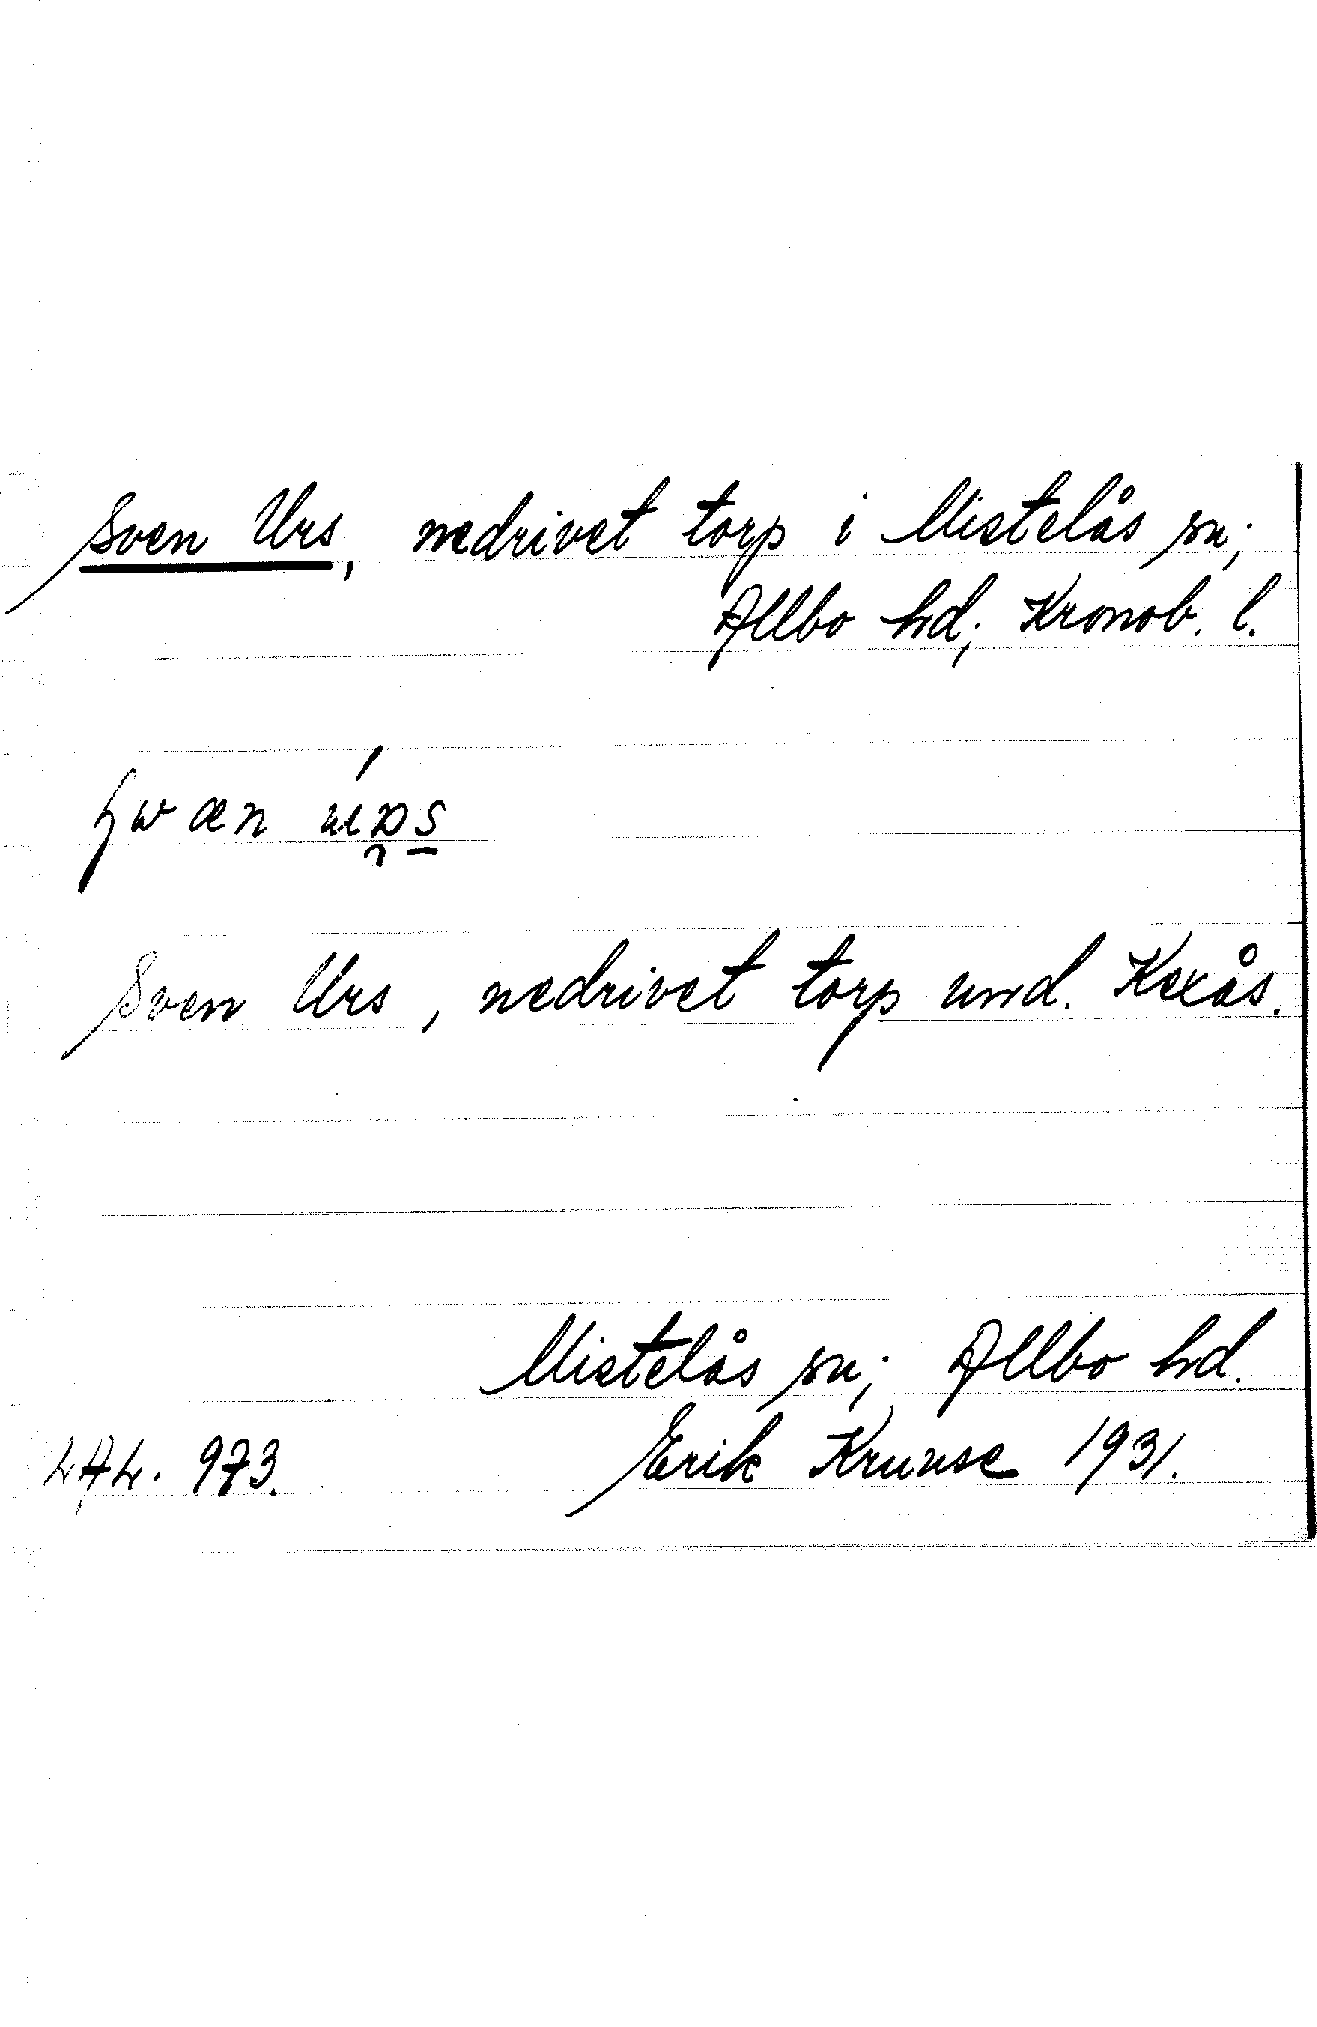 Sven Urs, nedrivet torp i Mistelås sn;
Allbo hd; Kronob. l.
Sven Urs, nedrivet torp und. Kexås.
Mistelås sn; Allbo hd.
LAL. 973. Erik Krunse 1931.